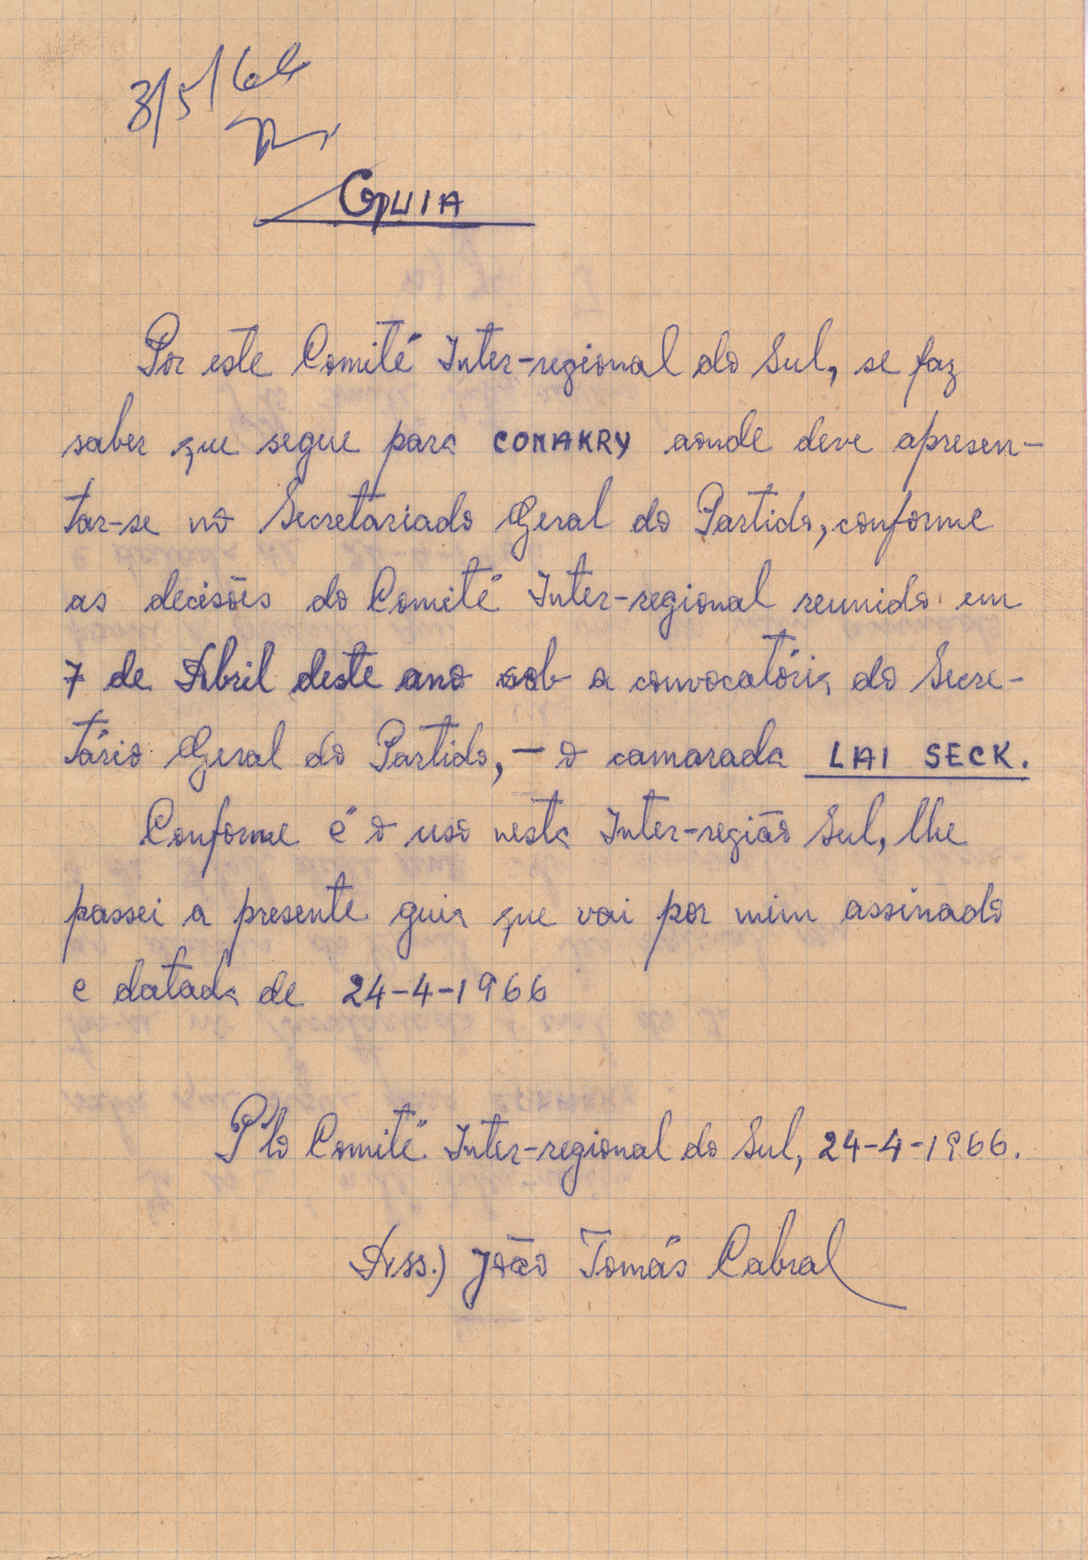 3/5/66
GUIA
Por este Comité Inter-regional do Sul, se faz
saber que segue para CONAKRY aonde deve apresen-
tar-se no Secretariado Geral do Partido, conforme
as decisões do Comité Inter-regional reunido em
7 de Abril deste ano sob a convocatória do Secre-
tário Geral do Partido, - o camarada LAI SECK.
Conforme é o uso nesta Inter-região Sul, lhe
passei a presente guia que vai por mim assinado
e datada de 24-4-1966
P'lo Comité Inter-regional do Sul, 24-4-1966.
Ass.) João Tomás Cabral